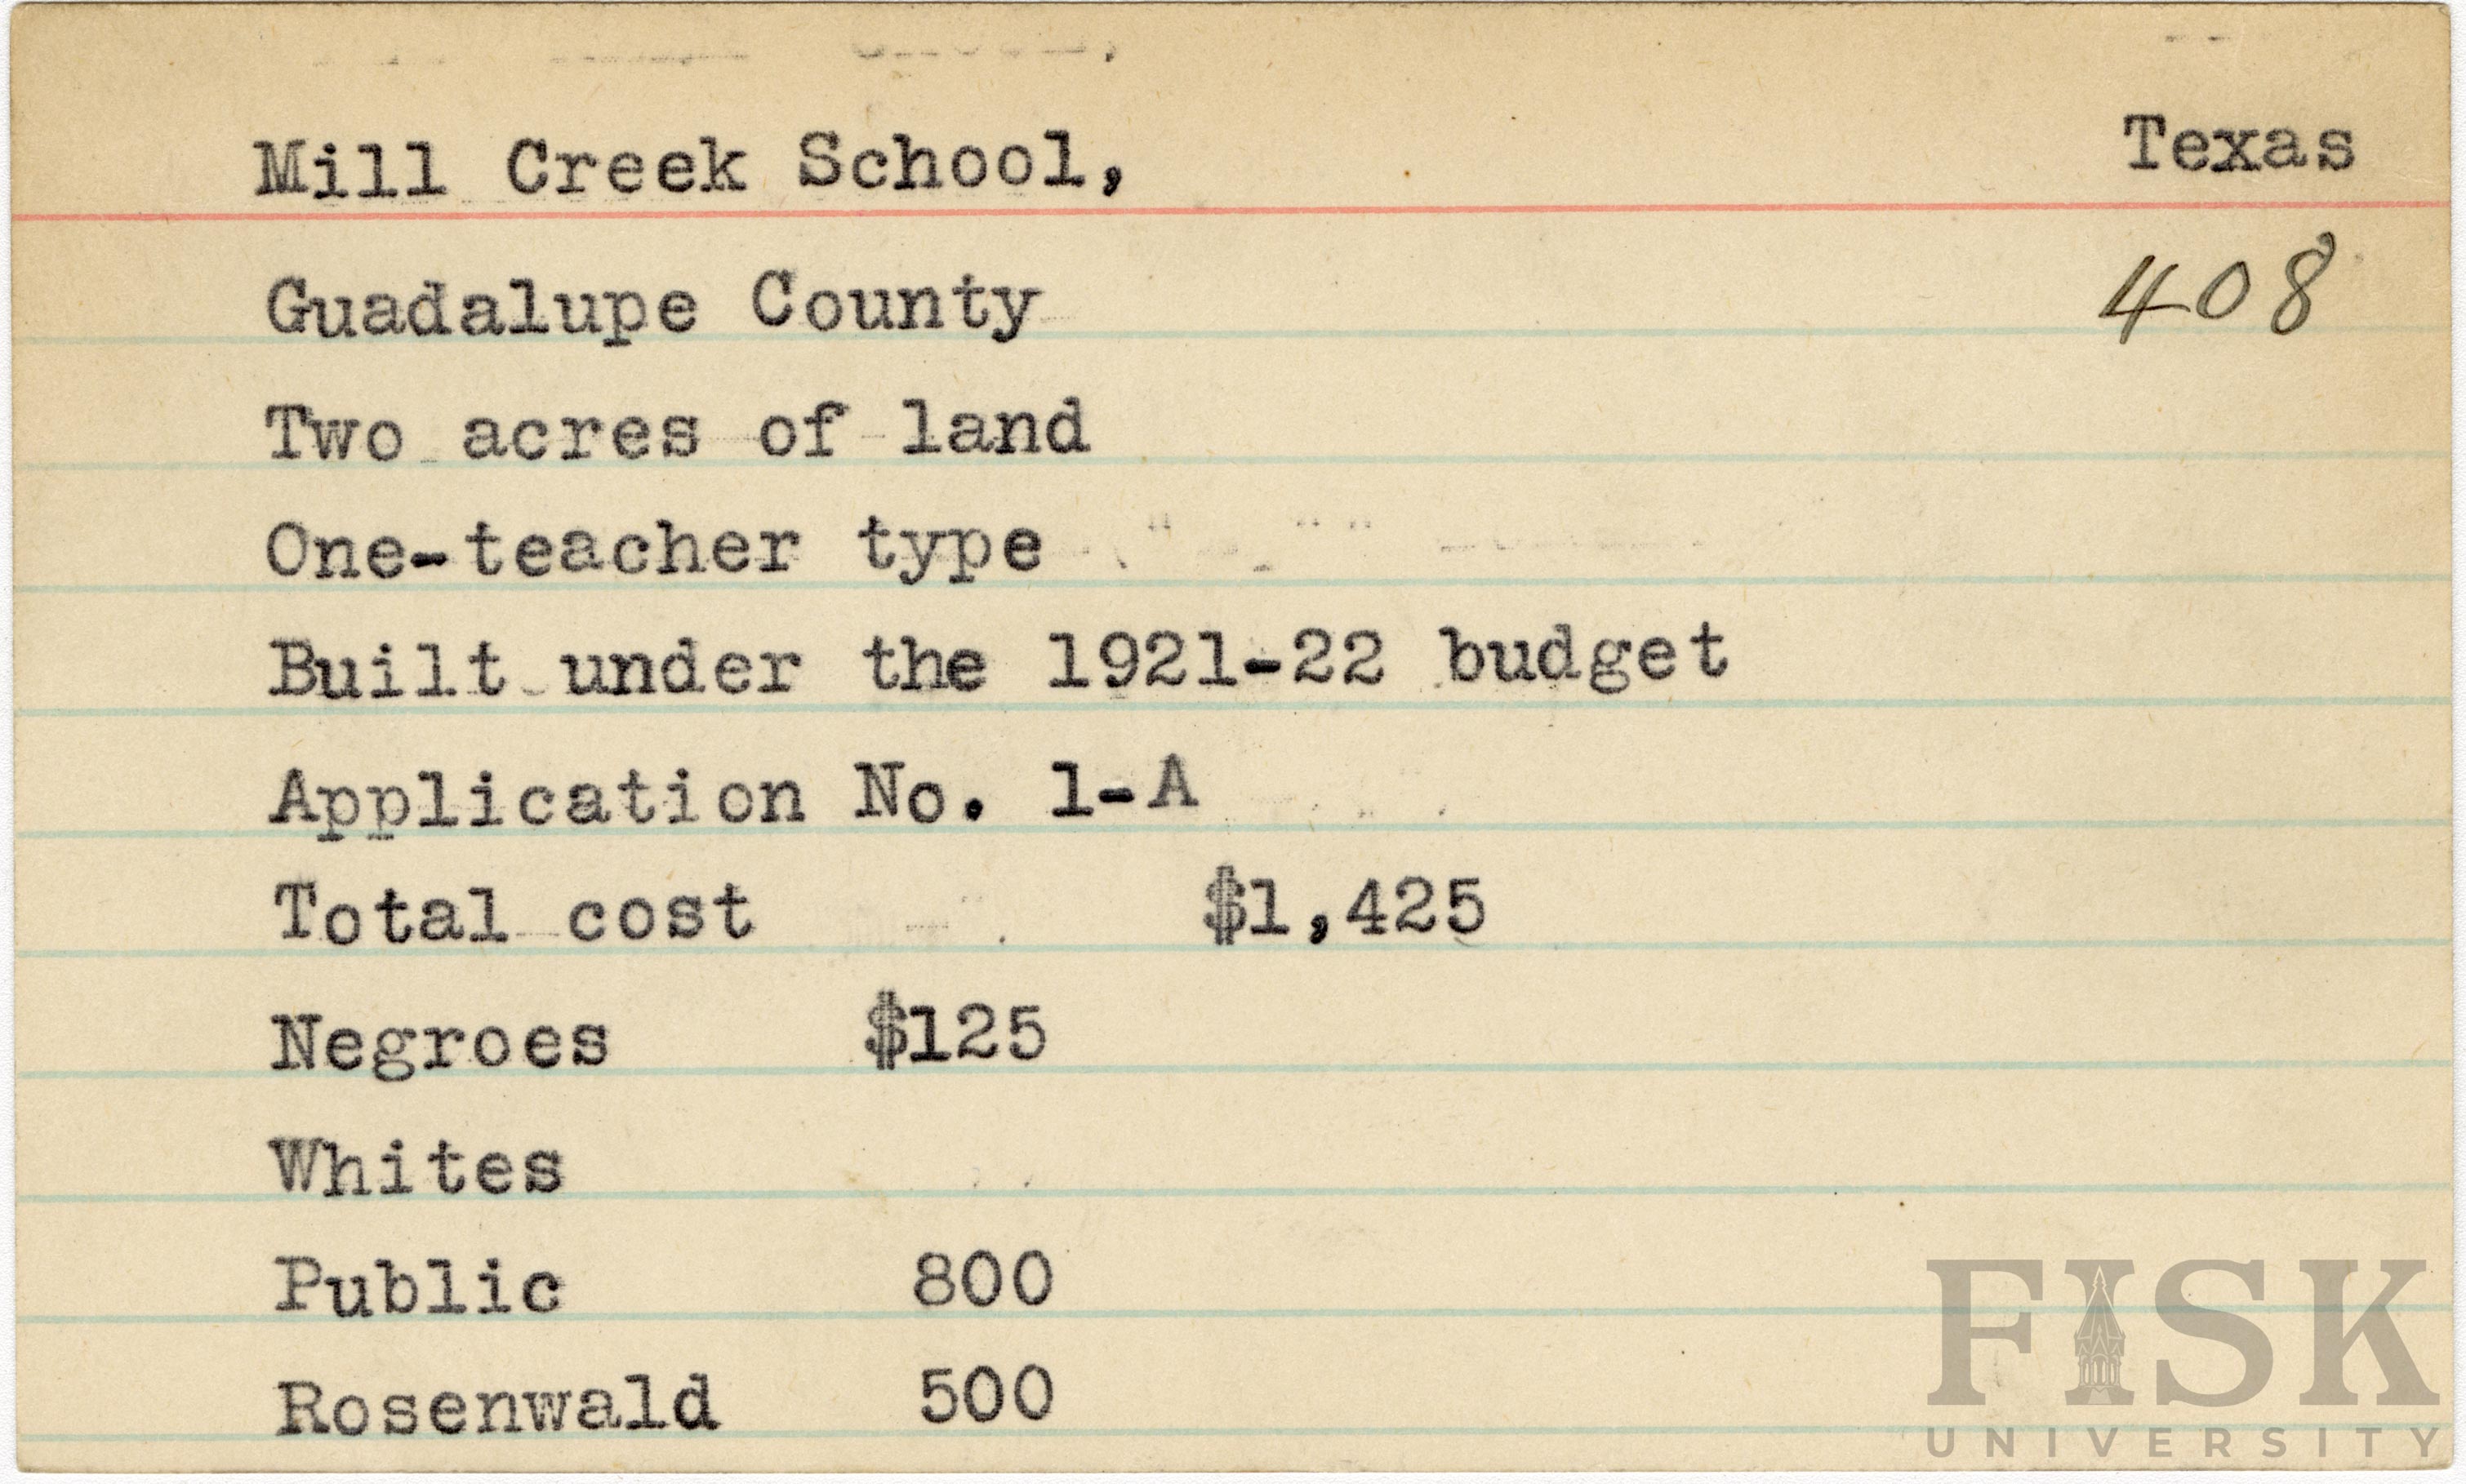 Mill Creek School, Texas
408
Guadalupe County
Two acres of land
One-teacher type
Built under the 1921-22 budget
Application No. 1-A
Total cost $1,425
Negroes $125
Whites
Public 800
Rosenwald 500
FISK
UNIVERSITY